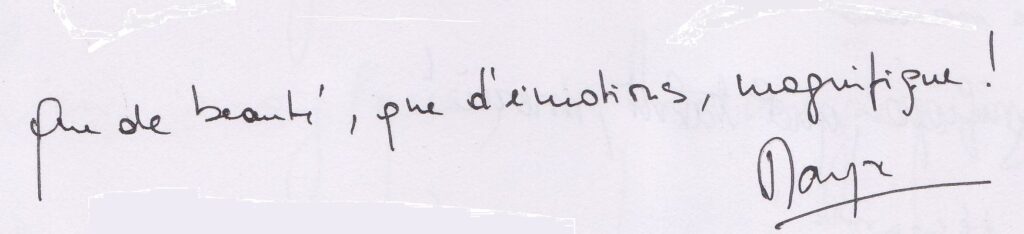 Que de beauté, que d'émotions, magnifique !